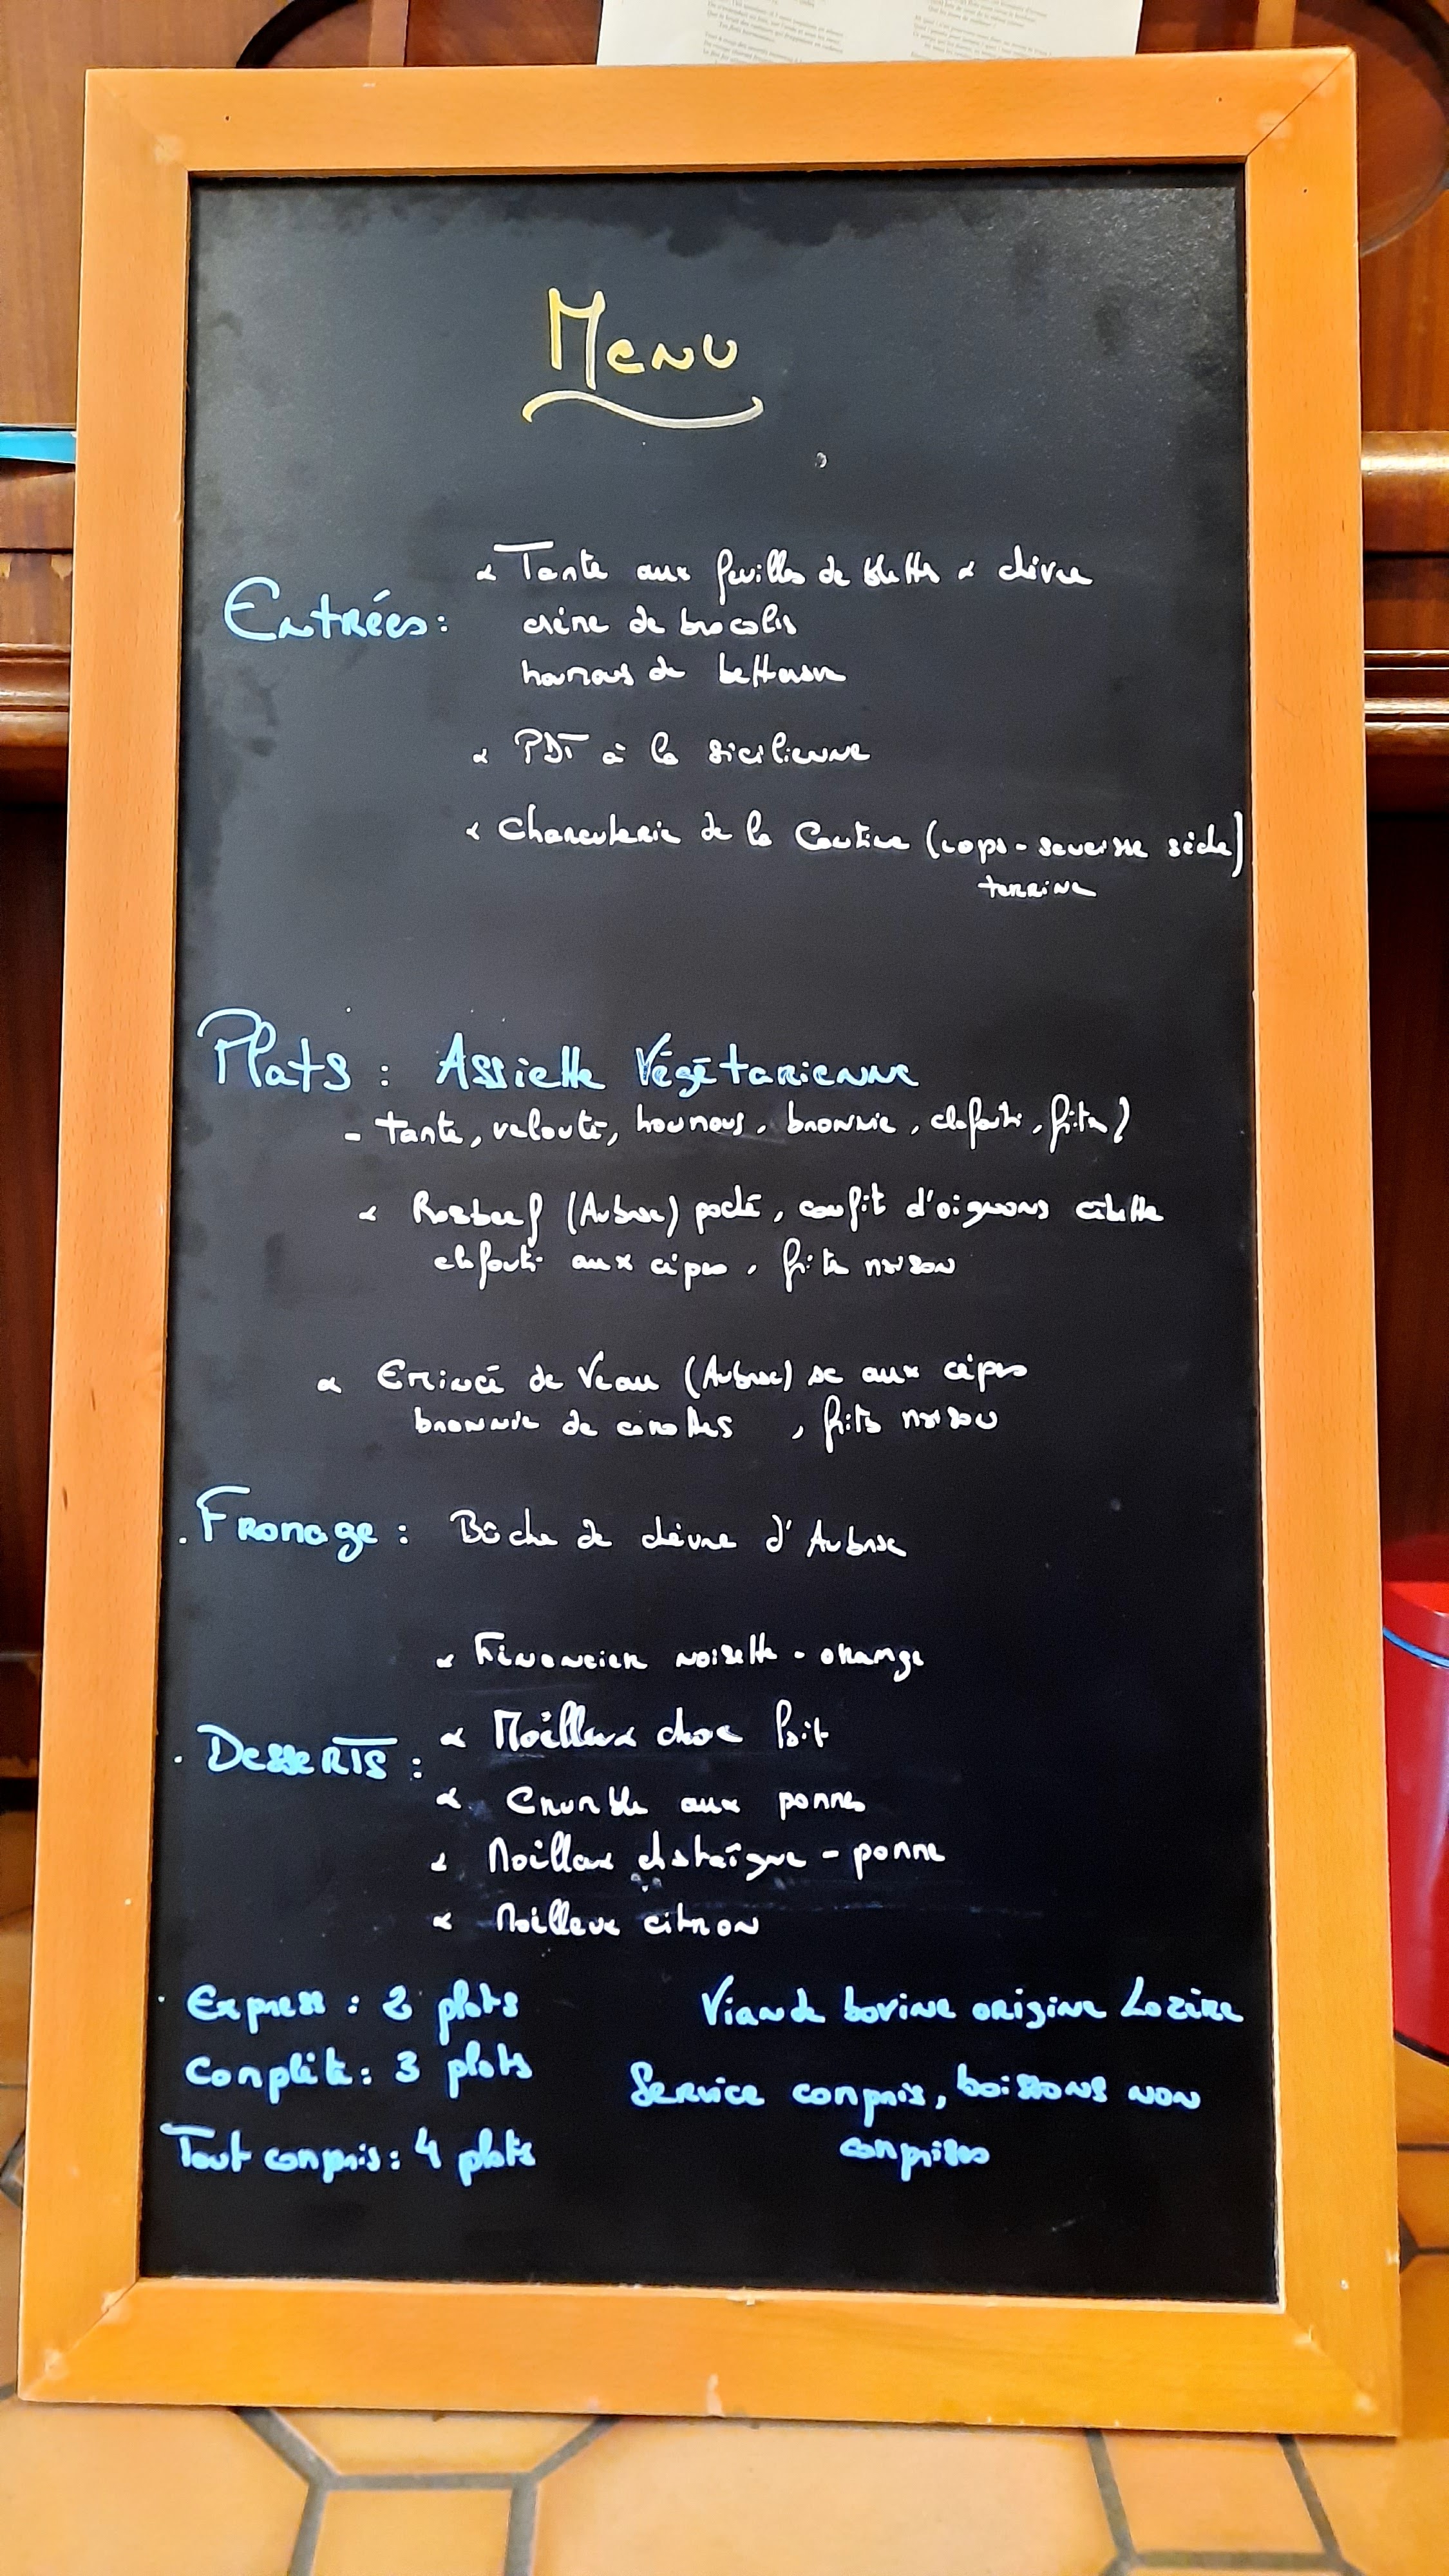 Menu
Entrées :
Tarte aux feuilles de blettes & chèvre
crème de brocolis
houmous de betterave
PDT à la sicilienne
Charcuterie de la Cantine (copa - saucisse sèche)
terrine
Plats : Assiette Végétarienne
- tarte, velouté, houmous, brownie, clafoutis, frites)
Rosbeef (Aubrac) poché, confit d'oignons cébette
clafoutis aux cèpes, frites maison
Emincé de Veau (Aubrac) sc aux cèpes
brownie de carottes , frites maison
. Fromage : Bûche de chèvre d'Aubrac
Financier noisette - orange
. Desserts :
Moelleux choc lait
Crumble aux pommes
Moelleux châtaîgne - pomme
Moelleux citron
Express : 2 plats
Viande bovine origine Lozère
Complète : 3 plats
Service compris, boissons non
comprises
Tout compris : 4 plats